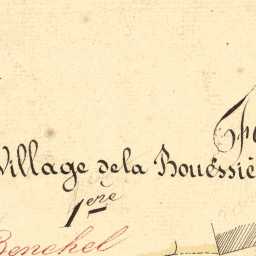 Village de la Bouëssiè
1ere
Benehel